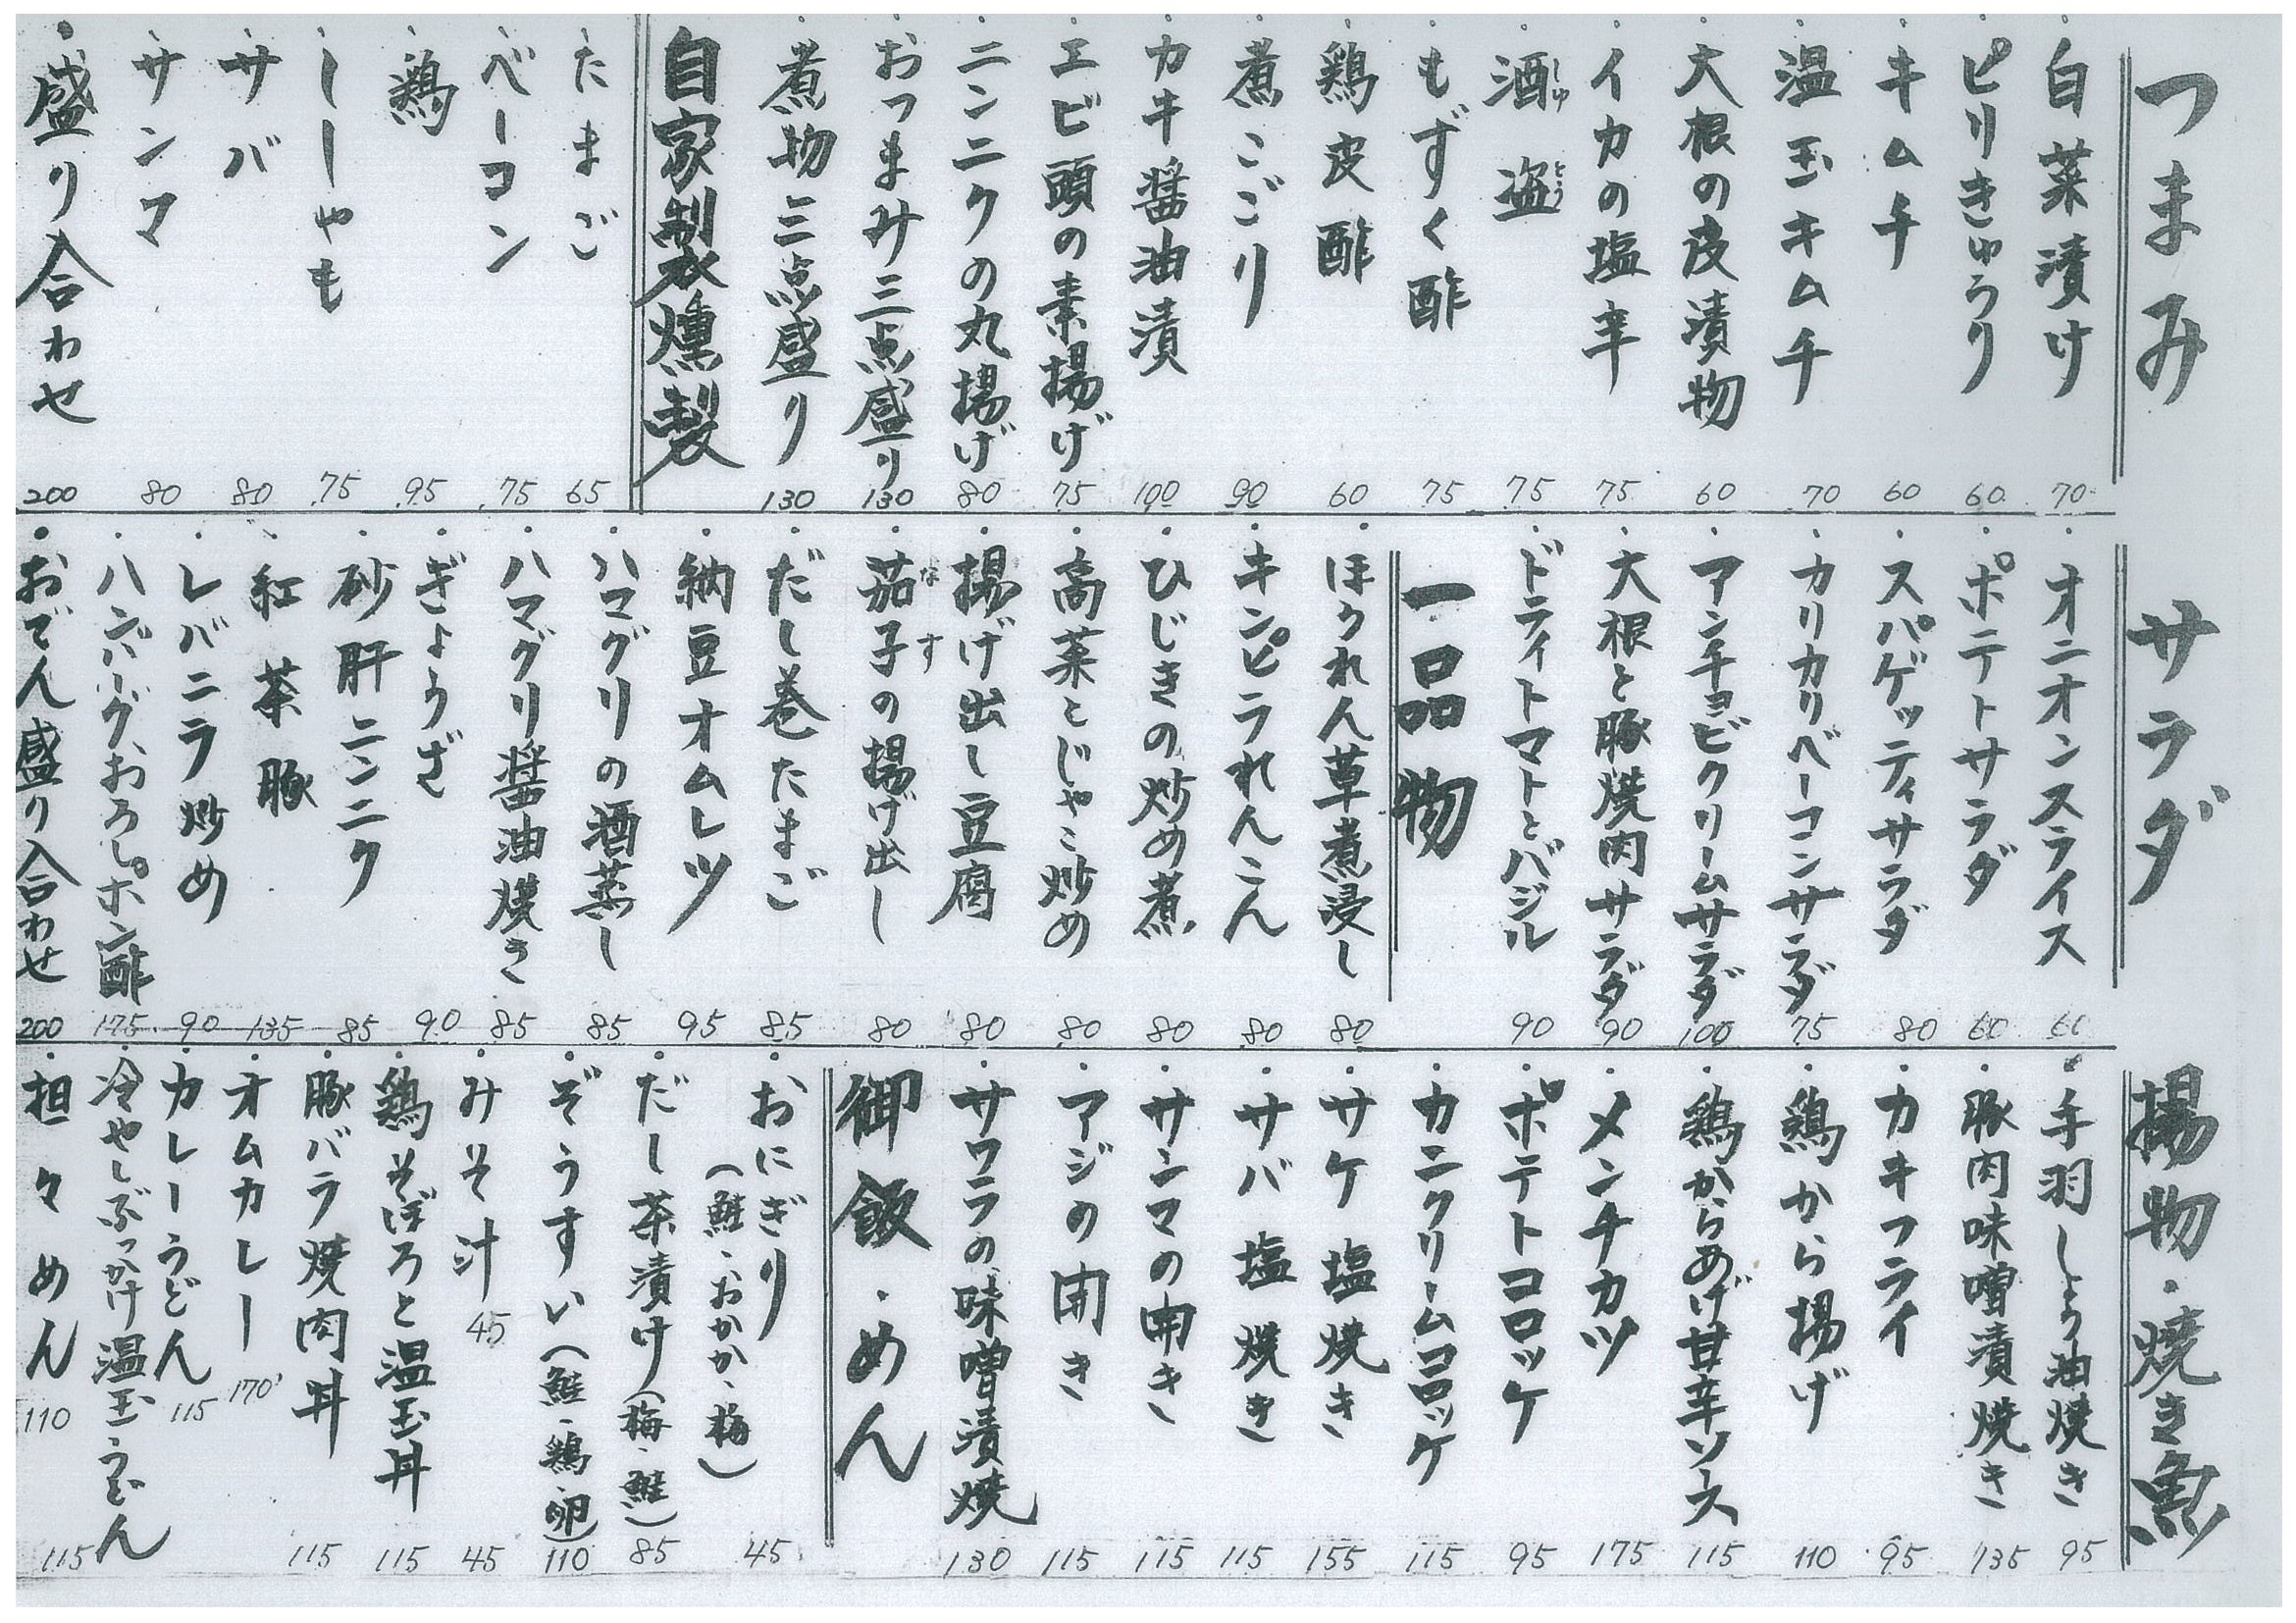 つまみ
白菜漬け 70
ピリきゅうり 60
キムチ 60
温玉キムチ 70
大根の皮漬物 60
イカの塩辛 75
酒盗 75
しゅ とう
もずく酢 75
鶏皮酢 60
煮こごり 90
カキ醤油漬 100
エビ頭の素揚げ 75
ニンニクの丸揚げ 80
おつまみ三点盛り 130
煮物三点盛り 130
自家製燻製
たまご 65
ベーコン 75
鶏 95
ししゃも 75
サバ 80
サンマ 80
盛り合わせ 200
サラダ
オニオンスライス 60
ポテトサラダ 60
スパゲッティサラダ 80
カリカリベーコンサラダ 75
アンチョビクリームサラダ 100
大根と豚焼肉サラダ 90
ドライトマトとバジル 90
一品物
ほうれん草煮浸し 80
キンピラれんこん 80
ひじきの炒め煮 80
高菜とじゃこ炒め 80
揚げ出し豆腐 80
茄子の揚げ出し 80
なす
だし巻たまご 85
納豆オムレツ 95
ハマグリの酒蒸し 85
ハマグリ醤油焼き 85
ぎょうざ 90
砂肝ニンニク 85
紅茶豚 135
レバニラ炒め 90
ハンバーグおろしポン酢 175
おでん盛り合わせ 200
揚物・焼き魚
手羽しょう油焼き 95
豚肉味噌漬焼き 135
カキフライ 95
鶏から揚げ 110
鶏からあげ甘辛ソース 115
メンチカツ 175
ポテトコロッケ 95
カニクリームコロッケ 115
サケ塩焼き 155
サバ塩焼き 115
サンマの開き 115
アジの開き 115
サワラの味噌漬焼 130
御飯・めん
おにぎり 45
(鮭、おかか、梅)
だし茶漬け(梅、鮭) 85
ぞうすい(鮭、鶏、卵) 110
みそ汁 45 45
鶏そぼろと温玉丼 115
豚バラ焼肉丼 115
オムカレー 170
カレーうどん 115
冷やしぶっかけ温玉うどん 115
担々めん 110